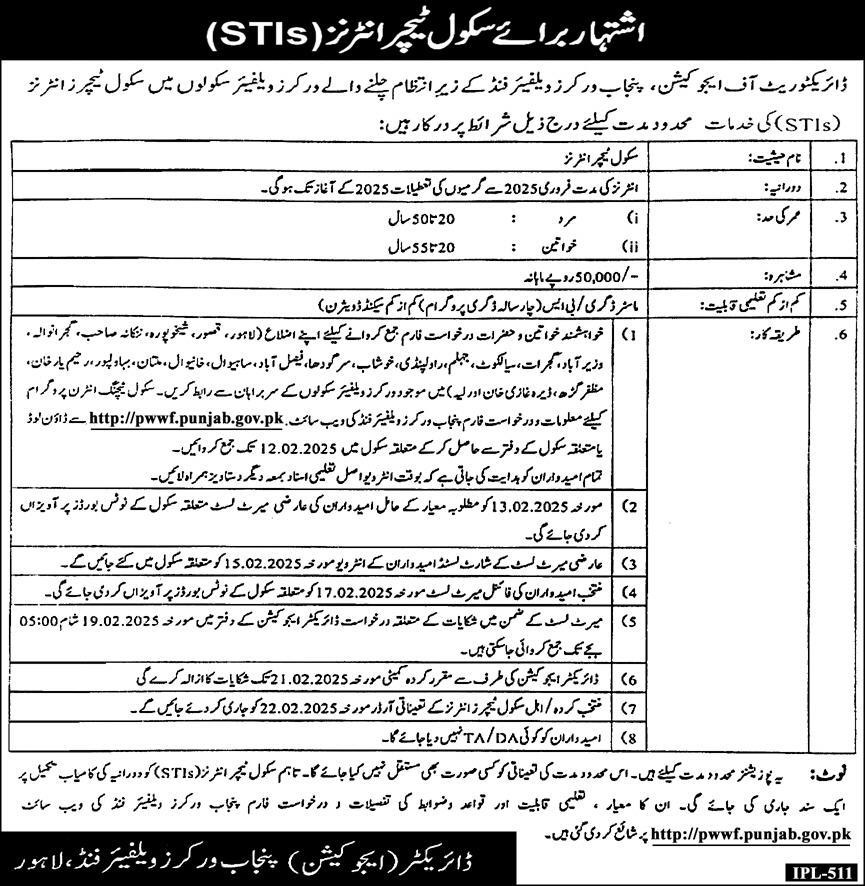 اشتہار برائے سکول ٹیچر انٹرنز (STIs)
ڈائریکٹوریٹ آف ایجوکیشن، پنجاب ورکرز ویلفیئر فنڈ کے زیر انتظام چلنے والے ورکرز ویلفیئر سکولوں میں سکول ٹیچرز انٹرنز
(STIs) کی خدمات محدود مدت کیلئے درج ذیل شرائط پر درکار ہیں:
1. نام حیثیت: سکول ٹیچر انٹرنز
2. دورانیہ: انٹرنز کی مدت فروری 2025 سے گرمیوں کی تعطیلات 2025 کے آغاز تک ہوگی۔
3. عمر کی حد: i) مرد : 20 تا 50 سال
ii) خواتین : 20 تا 55 سال
4. مشاہرہ: 50,000/- روپے ماہانہ
5. کم از کم تعلیمی قابلیت: ماسٹر ڈگری / بی ایس (چار سالہ ڈگری پروگرام) کم از کم سیکنڈ ڈویژن)
6. طریقہ کار: 1) خواہشمند خواتین و حضرات درخواست فارم جمع کروانے کیلئے اپنے اضلاع (لاہور، قصور، شیخوپورہ، ننکانہ صاحب، گجرانوالہ،
وزیر آباد، گجرات، سیالکوٹ، جہلم، راولپنڈی، خوشاب، سرگودھا، فیصل آباد، ساہیوال، خانیوال، ملتان، بہاولپور، رحیم یار خان،
مظفر گڑھ، ڈیرہ غازی خان اور لیہ) میں موجود ورکرز ویلفیئر سکولوں کے سربراہان سے رابطہ کریں۔ سکول ٹیچنگ انٹرن پروگرام
کیلئے معلومات و درخواست فارم پنجاب ورکرز ویلفیئر فنڈ کی ویب سائٹ. http://pwwf.punjab.gov.pk سے ڈاؤن لوڈ
یا متعلقہ سکول کے دفتر سے حاصل کر کے متعلقہ سکول میں 12.02.2025 تک جمع کروائیں۔
تمام امیدواران کو ہدایت کی جاتی ہے کہ بوقت انٹرویو اصل تعلیمی اسناد بمعہ دیگر دستاویز ہمراہ لائیں۔
2) مورخہ 13.02.2025 کو مطلوبہ معیار کے حامل امیدواران کی عارضی میرٹ لسٹ متعلقہ سکول کے نوٹس بورڈز پر آویزاں
کر دی جائے گی۔
3) عارضی میرٹ لسٹ کے شارٹ لسٹڈ امیدواران کے انٹرویو مورخہ 15.02.2025 کو متعلقہ سکول میں کئے جائیں گے۔
4) منتخب امیدواران کی فائنل میرٹ لسٹ مورخہ 17.02.2025 کو متعلقہ سکول کے نوٹس بورڈز پر آویزاں کر دی جائے گی۔
5) میرٹ لسٹ کے ضمن میں شکایات کے متعلقہ درخواست ڈائریکٹر ایجوکیشن کے دفتر میں مورخہ 19.02.2025 شام 05:00
بجے تک جمع کروائی جاسکتی ہیں۔
6) ڈائریکٹر ایجوکیشن کی طرف سے مقرر کردہ کمیٹی مورخہ 21.02.2025 تک شکایات کا ازالہ کرے گی
7) منتخب کردہ / اہل سکول ٹیچرز انٹرنز کے تعیناتی آرڈر مورخہ 22.02.2025 کو جاری کر دئے جائیں گے۔
8) امیدواران کو کوئی TA/DA نہیں دیا جائے گا۔
نوٹ: یہ پوزیشنز محدود مدت کیلئے ہیں۔ اس محدود مدت کی تعیناتی کو کسی صورت بھی مستقل نہیں کیا جائے گا۔ تاہم سکول ٹیچر انٹرنز (STIs) کو دورانیہ کی کامیاب تکمیل پر
ایک سند جاری کی جائے گی۔ ان کا معیار، تعلیمی قابلیت اور قواعد و ضوابط کی تفصیلات و درخواست فارم پنجاب ورکرز ویلفیئر فنڈ کی ویب سائٹ
http://pwwf.punjab.gov.pk پر شائع کر دی گئی ہیں۔
ڈائریکٹر (ایجوکیشن) پنجاب ورکرز ویلفیئر فنڈ، لاہور
IPL-511